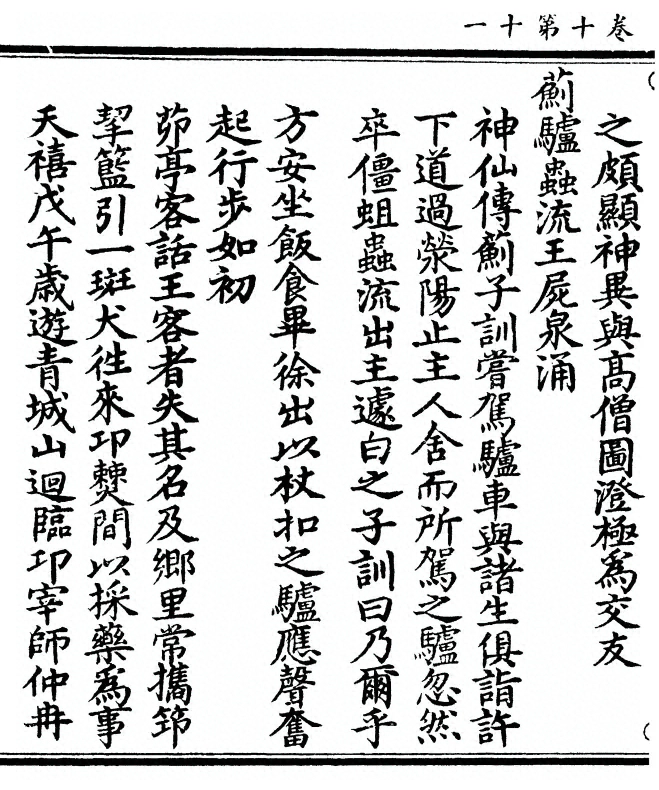 卷十第十一
之頗顯神異與高僧圖澄極為交友
薊驢蟲流王屍泉涌
神仙傳薊子訓嘗駕驢車與諸生俱詣許
下道過滎陽止主人舍而所駕之驢忽然
卒僵蛆蟲流出主遽白之子訓曰乃爾乎
方安坐飯食畢徐出以杖扣之驢應聲奮
起行步如初
茆亭客話王客者失其名及鄉里常攜筇
挈籃引一斑犬徃來卭僰間以採藥為事
天禧戊午歳遊青城山迴臨卭宰師仲冉